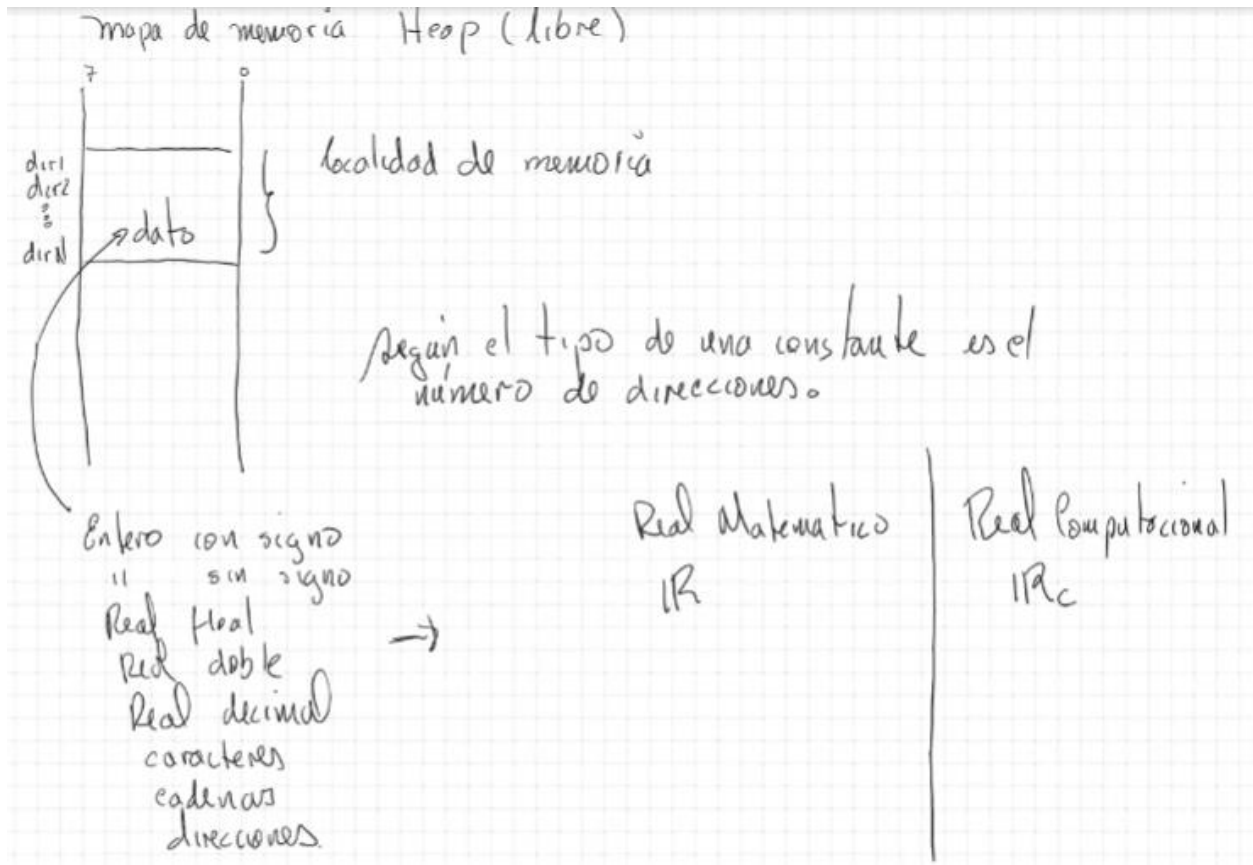 mapa de memoria Heap (libre)
7 0
dir1
dir2
dirN
dato
localidad de memoria
según el tipo de una constante es el
número de direcciones.
Entero con signo
" sin signo
Real float
Real doble
Real decimal
caracteres
cadenas
direcciones
→
Real Matematico
IR
Real Computacional
IRc